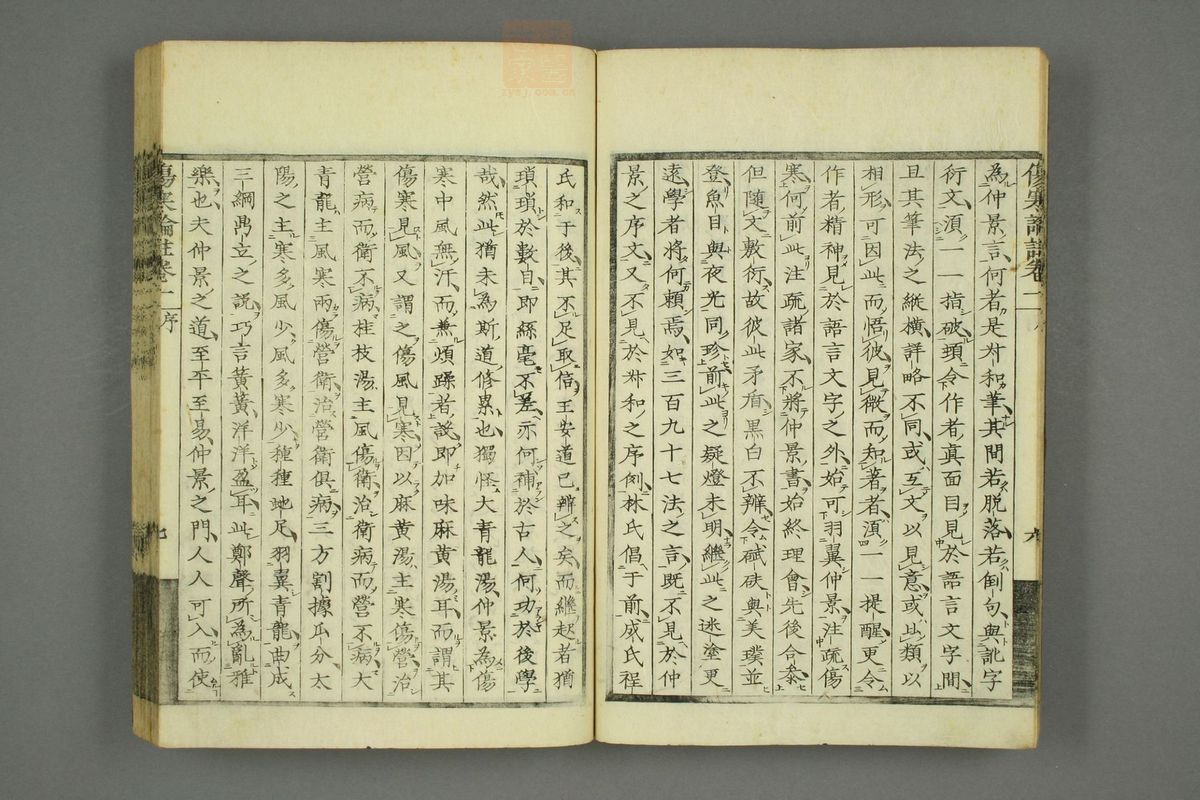 傷寒論註卷一
為仲景言何者是叔和筆其間若脫落若倒句與訛字
衍文湏一一指破頭令作者真面目見於語言文字間
且其筆法之縱橫詳略不同或互文以見意或比類以
相形可因此而悟彼見微而知著者湏一一提醒更令
作者精神見於語言文字之外始可羽翼仲景注疏傷
寒何前此注疏諸家不將仲景書始終理會先後合叅
但隨文敷衍故彼此矛盾黑白不辨令碔砆與美璞並
登魚目與夜光同珍前此之疑燈未明繼此之迷塗更
遠學者將何頼焉如三百九十七法之言既不見於仲
景之序文又不見於叔和之序例林氏倡于前成氏程
氏和于後其不足取信王安道已辨之矣而繼起者猶
瑣瑣於數目即絲毫不差亦何補於古人何功於後學
哉然此猶未為斯道備累也獨怪大青龍湯仲景為傷
寒中風無汗而兼煩躁者說即加味麻黃湯耳而謂其
傷寒見風又謂之傷風見寒因以麻黃湯主寒傷營治
營病而衛不病桂枝湯主風傷衛治衛病而營不病大
青龍主風寒兩傷營衛治營衛俱病三方割據瓜分太
陽之主寒多風少風多寒少種種蛇足羽翼青龍曲成
三綱鼎立之說巧言簧簧洋洋盈耳此鄭聲所為亂雅
樂也夫仲景之道至平至易仲景之門人人可入而使
傷寒論註卷一 序
七
zysj.com.cn